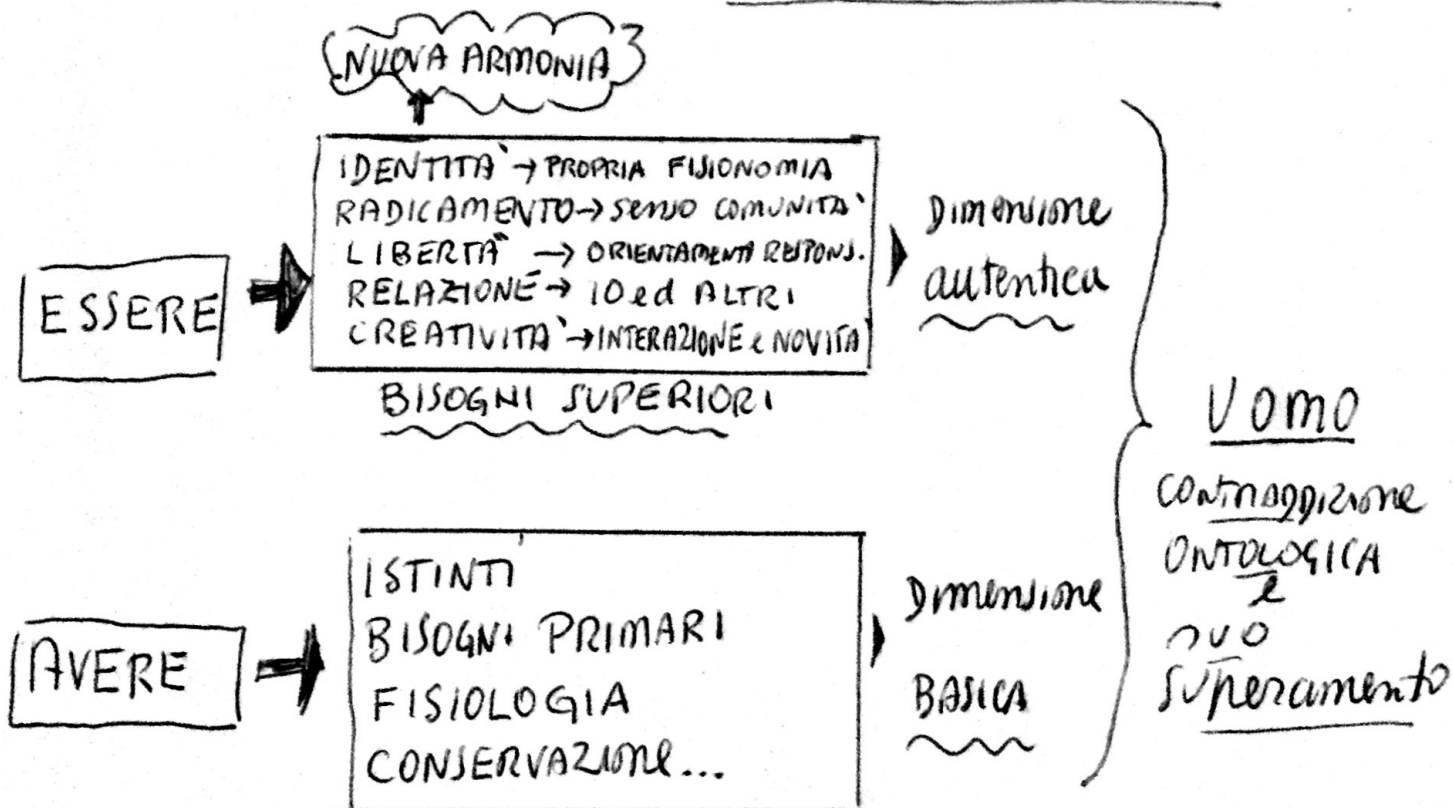 NUOVA ARMONIA
IDENTITÀ → PROPRIA FISIONOMIA
RADICAMENTO → SENSO COMUNITÀ
LIBERTÀ → ORIENTAMENTI RESPONS.
RELAZIONE → IO ed ALTRI
CREATIVITÀ → INTERAZIONE e NOVITÀ
ESSERE
BISOGNI SUPERIORI
Dimensione
autentica
AVERE
ISTINTI
BISOGNI PRIMARI
FISIOLOGIA
CONSERVAZIONE...
Dimensione
BASICA
UOMO
CONTRADDIZIONE
ONTOLOGICA
e
suo
superamento